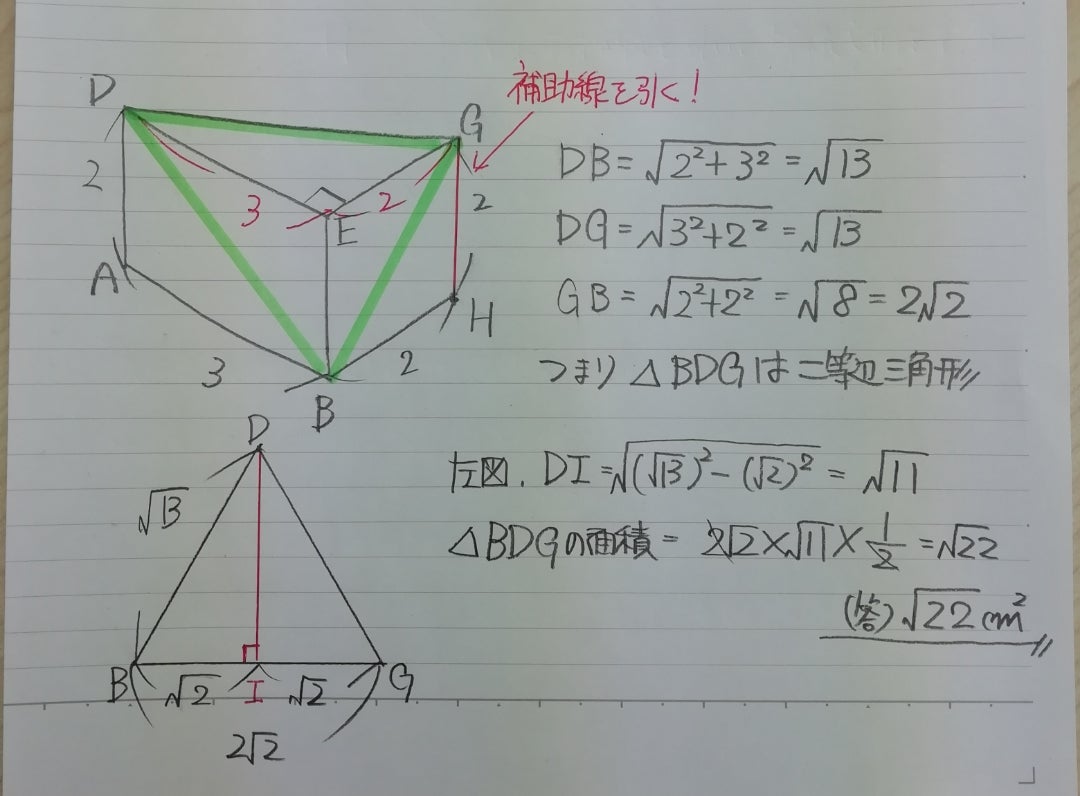 補助線を引く!
D
G
2
3
2
2
E
A
H
3
2
B
DB=√2²+3²=√13
DG=√3²+2²=√13
GB=√2²+2²=√8=2√2
つまり△BDGは二等辺三角形
D
√13
B
√2
I
√2
G
2√2
左図. DI=√(√13)²-(√2)²=√11
△BDGの面積=2√2×√11×1/2=√22
(答)√22cm²